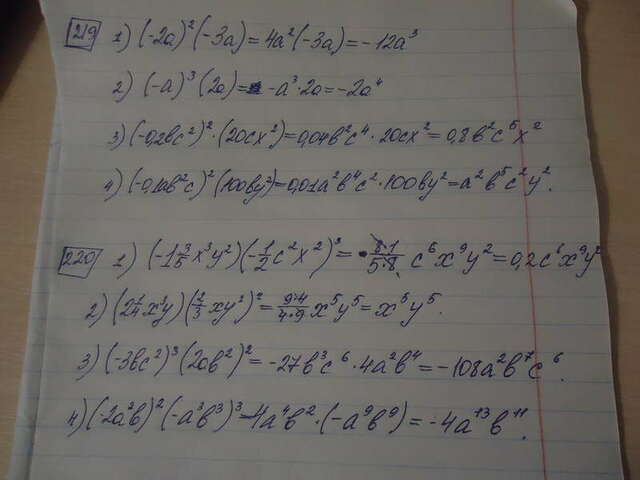 219 1) (-2a)²(-3a)=4a²(-3a)=-12a³
2) (-a)³(2a)=-a³·2a=-2a⁴
3) (-0,2bc²)²·(20cx²)=0,04b²c⁴·20cx²=0,8b²c⁵x²
4) (-0,1ab²c)²(100by²)=0,01a²b⁴c²·100by²=a²b⁵c²y².
220 1) (-1 3/5 x³y²)(-1/2 c²x²)³= 8·1/5·8 c⁶x⁹y²=0,2c⁶x⁹y²
2) (2 1/4 x³y)(2/3 xy²)²=9·4/4·9 x⁵y⁵=x⁵y⁵.
3) (-3bc²)³(2ab²)²=-27b³c⁶·4a²b⁴=-108a²b⁷c⁶.
4) (-2a²b)²(-a³b³)³=4a⁴b²·(-a⁹b⁹)=-4a¹³b¹¹.